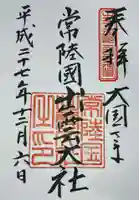 奉拝
大国さま
常陸國出雲大社
平成二十七年十二月六日